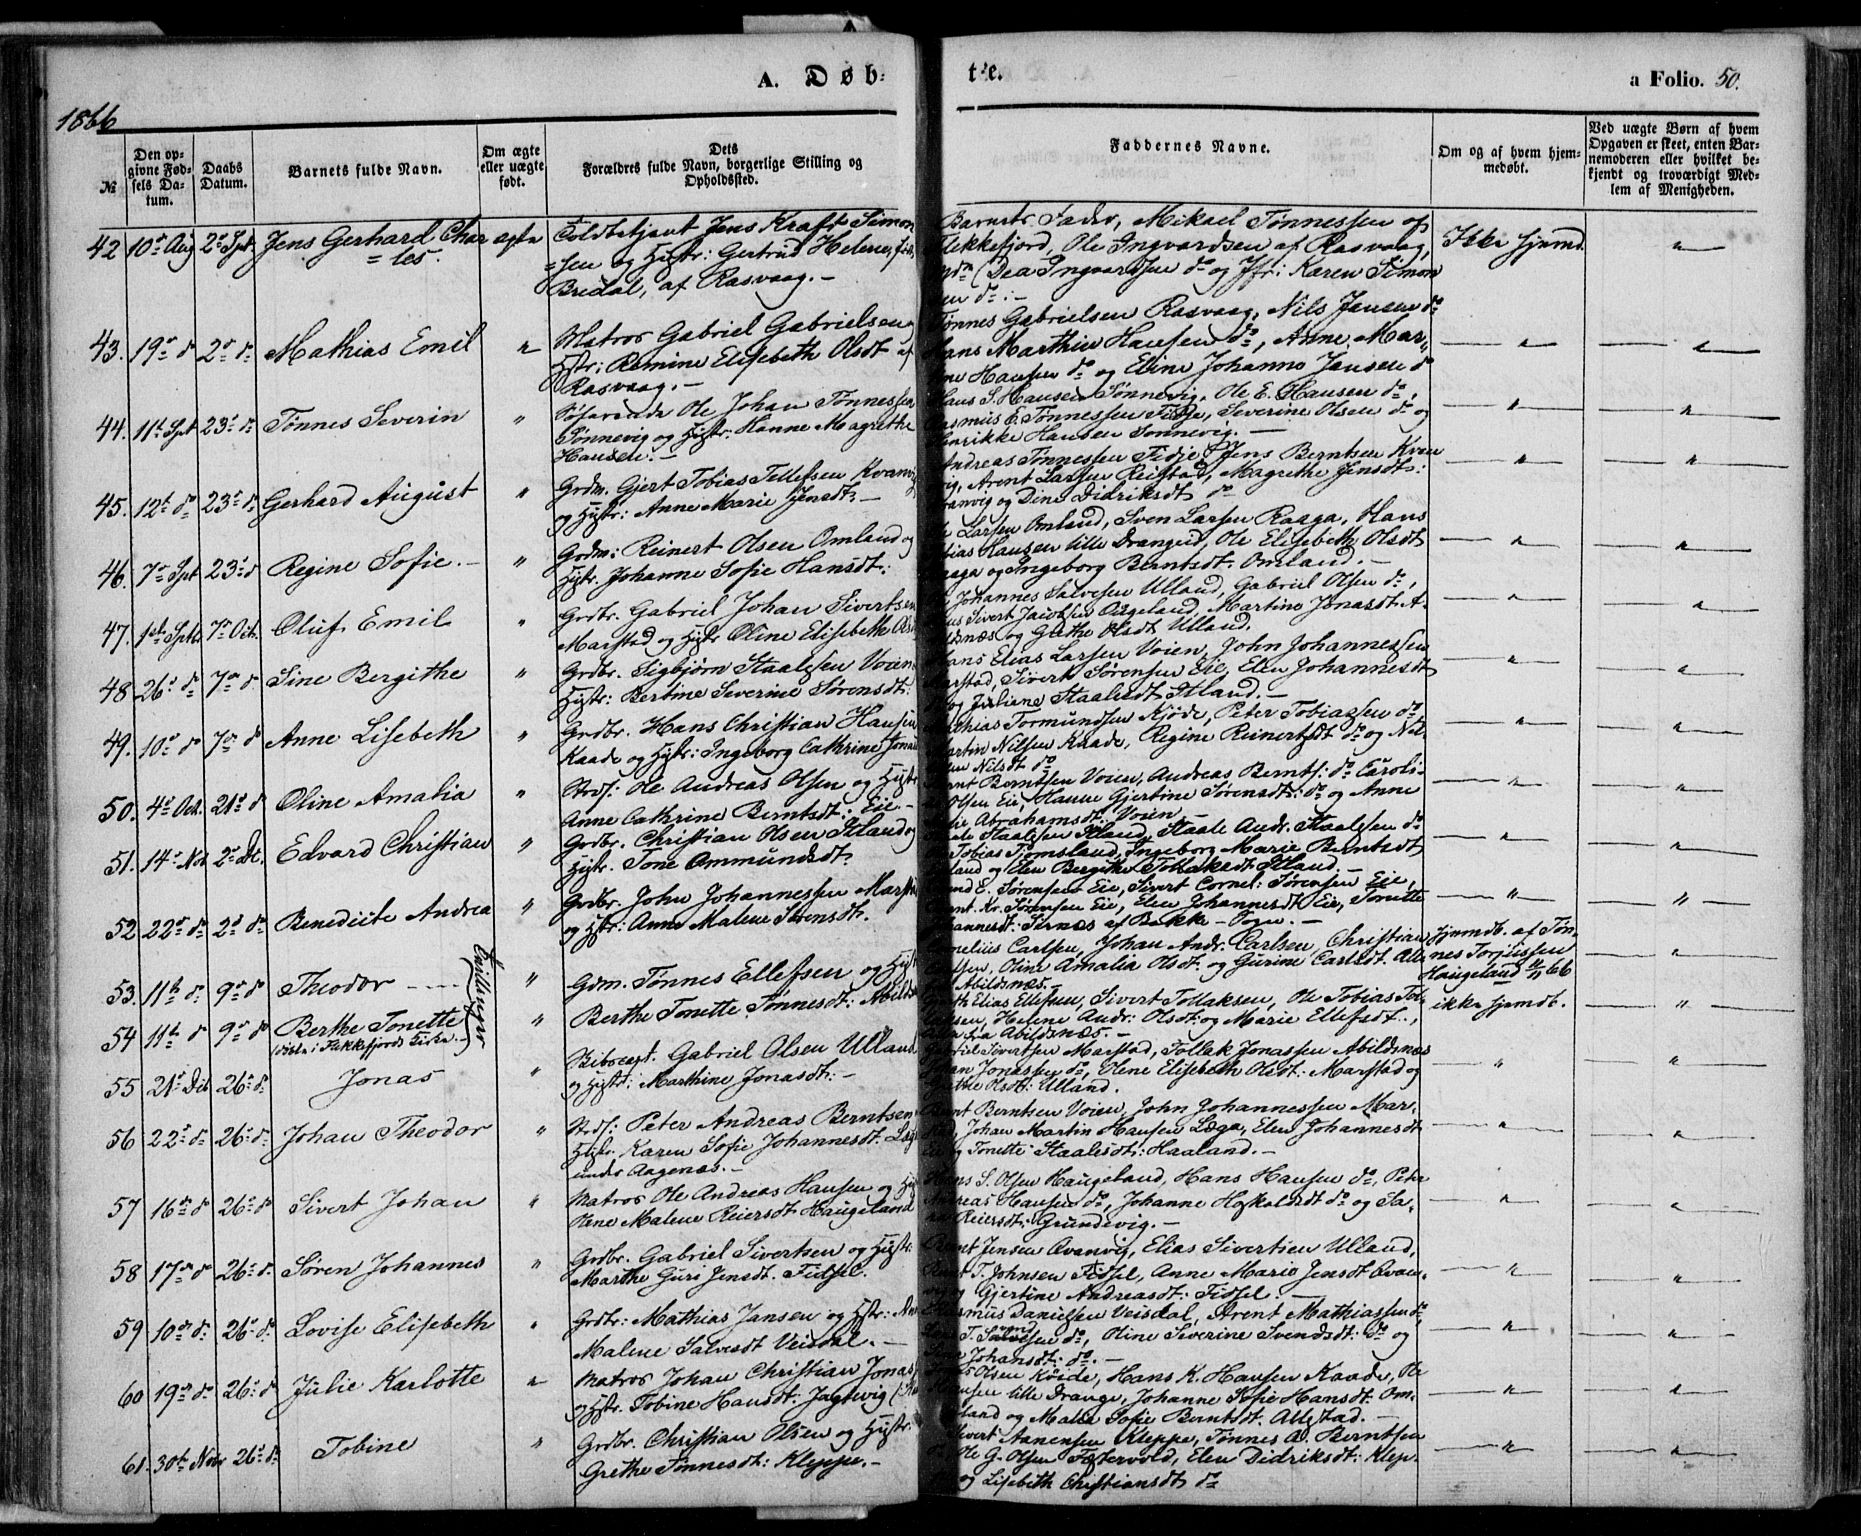 A. Døb=
te.
a Folio. 50.
1866
№
Den opgivne Fødsels Datum.
Daabs Datum.
Barnets fulde Navn.
Om ægte eller uægte født.
Dets Forældres fulde Navn, borgerlige Stilling og Opholdssted.
Faddernes Navne.
Om og af hvem hjemmedøbt.
Ved uægte Børn af hvem Opgaven er skeet, enten Barnemoderen eller hvilket bekjendt og troværdigt Medlem af Menigheden.
42 10de Aug 2den Spt. Jens Gerhard Char=les. ægte Toldbetjent Jens Kraft Simon
=sen og Hustr: Gertrud Helene, født
Bredal, af Rasvaag. —
Barnets Fader, Mikael Tønnessen af
Flekkefjord, Ole Ingvardsen af Rasvaag,
Dea Ingvardsen do og Jfr: Karen Simon
sen do: —
Ikke hjemd.
43. 19de do 2den do Mathias Emil " Matros Gabriel Gabrielsen og
Hstr: Remine Elisebeth Olsdt af
Rasvaag. —
Tønnes Gabrielsen Rasvaag, Nils Jansen do
Hans Marthin Hansen do, Anne Mar=
ne Hansen do og Eline Johanne Jansen do
44. 11te Spt 23de do Tønnes Severin " Søfarende Ole Johan Tønnessen
Sønnevig og Hstr: Hanne Magrethe
Hansen. —
Hans S. Hansen Sønnevig, Ole E. Hansen do,
Rasmus E. Tønnessen Fidje, Severine Olsen do og
Henrikke Hansen Sønnevig. —
45. 12te do 23de do Gerhard August " Grdm. Gjert Tobias Tellefsen Kvanvig
og Hustr: Anne Marie Jensdt. —
Andreas Tønnessen Fidje, Jens Berntsen Kvan
vig, Arent Larsen Reistad, Magrethe Jensdt:
Kvanvig og Dine Didriksdt do
46. 7de Spt 23de do Regine Sofie. — " Grdm: Reinert Olsen Omland og
Hstr. Johanne Sofie Hansdt:
Larsen Omland, Sven Larsen Raaga, Hans
Tobias Hansen lille Drangeid, Ole Elisebeth Olsdt
Raaga og Ingeborg Berntsdt. Omland. —
47. 1ste Sptb 7de Oct. Oluf Emil " Grdbr. Gabriel Johan Sivertsen
Marstad og Hstr Oline Elisebeth Olsd
Johannes Salvesen Ulland, Gabriel Olsen do,
Sivert Jacobsen Augeland, Martine Jonasdt. A=
bildsnæs og Grethe Olsdt Ulland.
48 26de do 7de do Sine Bergithe " Grdbr. Sigbjørn Staalesen Voien
Hstr: Bertine Severine Sørensdt:
Hans Elias Larsen Voien, John Johannessen
Marstad, Sivert Sørensen Eie, Elen Johannesdt
og Juliane Staalesdt Stland. —
49. 10de do 7de do Anne Lisebeth " Grdbr. Hans Christian Hansen
Kaade og Hstr: Ingeborg Cathrine Jonas
Mathias Tormundsen Kjøde, Peter Tobiassen do
Martin Nilsen Kaade, Regine Reinertsdt do og Nel
Nilsdt do
50. 4de Oct. 21de do Oline Amalia " Strds: Ole Andreas Olsen og Hstr
Anne Cathrine Berntsdt: Eie —
Bernt Berntsen Voien, Andreas Bernts: do Caroli=
Olsen Eie, Hanne Gjertine Sørensdt: do og Anne
Abrahamsdt: Voien —
51. 14de Nov. 2den Dec. Edvard Christian " Grdbr. Christian Olsen Stland og
Hstr. Tone Ommundsdt.
Staalesen Stland, Staale Andr. Staalesen do
Tobias Tjomsland, Ingeborg Marie Berntsdt
Stland og Elen Bergithe Tollaksdt Stland. —
52 22de do 2d do Benedicte Andrea " Grdbr. John Johannessen Marstad
og Hstr: Anne Malene Sørensdt.
E. Sørensen Eie, Sivert Cornel: Sørensen Eie,
Bernt Kr. Sørensen Eie, Elen Johannesdt Eie, Tonette
Johannesdt: Sirnæs af Bakke = Sogn. —
53. 11te do 9de do Theodor Gdm. Tønnes Ellefsen og Hst
Berthe Tonette Tønnesdt: Abilds
Cornelius Carlsen, Johan Andr. Carlsen, Christian
Olsen, Oline Amalia Olsdt. og Gurine Carlsdt. Alle
Abildsnæs.
Hjemdb. af Tøn=
nes Torjussen
Haugeland 11/11 66
54 11te do 9de do Berthe Tonette
(døbt i Flekkefjords Kirke. —)
Tvillinger
Elias Ellefsen, Sivert Tollaksen, Ole Tobias Tol
Helene Andr: Olsdt: og Marie Ellefsdt.,
fra Abildsnæs. —
ikke hjemdb.
55 21de Oct 26de do Jonas " Bibrogt. Gabriel Olsen Ulland
og Hstr: Marthine Jonasdt: —
Gabriel Sivertsen Marstad, Tollak Jonassen Abildsnæs
Johan Jonassen do, Olene Elisebeth Olsdt: Marstad og
Grethe Olsdt: Ulland.
56 22de do 26de do Johan Theodor " Strds: Peter Andreas Berntsen
Hstr. Karen Sofie Johannesdt. Læga
under Aagenæs. —
Bernt Berntsen Voien, John Johannessen Mar=
stad Johan Martin Hansen Læga, Elen Johannesdt
Eie og Tonette Staalesdt: Haaland. —
57 16de do 26de do Sivert Johan " Matros Ole Andreas Hansen og Hst
Rene Malene Reiersdt Haugeland
Hans S. Olsen Haugeland, Hans Hansen do, Peter
Andreas Hansen do, Johanne Hoskoldsdt do og Sa=
Reiersdt. Grundevig. —
58 17de do 26de do Søren Johannes " Grdbr. Gabriel Sivertsen og Hstr:
Marthe Guri Jensdt. Fidsel.
Bernt Jensen Qvanvig, Elias Sivertsen Ulland,
Bernt T. Johnsen Fidsel, Anne Marie Jensdt Qvan=
vig og Gjertine Andreasdt: Fidsel —
59 10de do 26de do Lovise Elisebeth " Grdbr: Mathias Jansen og Hstr: Ane
Malene Salvesdt Veisdal. —
Rasmus Danielsen Veisdal, Arent Mathiassen do,
T. Salvesen do, Oline Severine Svendsdt: do og
Johansdt: do. —
60 19de do 26de do Julie Karlotte " Matros Johan Christian Jonas
og Hstr. Tobine Hansdt. Jagtevig
Olsen Køide, Hans K. Hansen Kaade, Ole
Hansen lille Drange, Johanne Sofie Hansdt. Om=
land og Malene Sofie Berntsdt. Allestad. —
61. 30te Nov 26de do Tobine " Grdbr. Christian Olsen og Hstr:
Grethe Tønnesdt: Kleppe. —
Sivert Aanensen Kleppe, Tønnes A. Berntsen
do Ole G. Olsen Festervold, Elen Didriksdt: Klep
og Lisebeth Christiansdt do